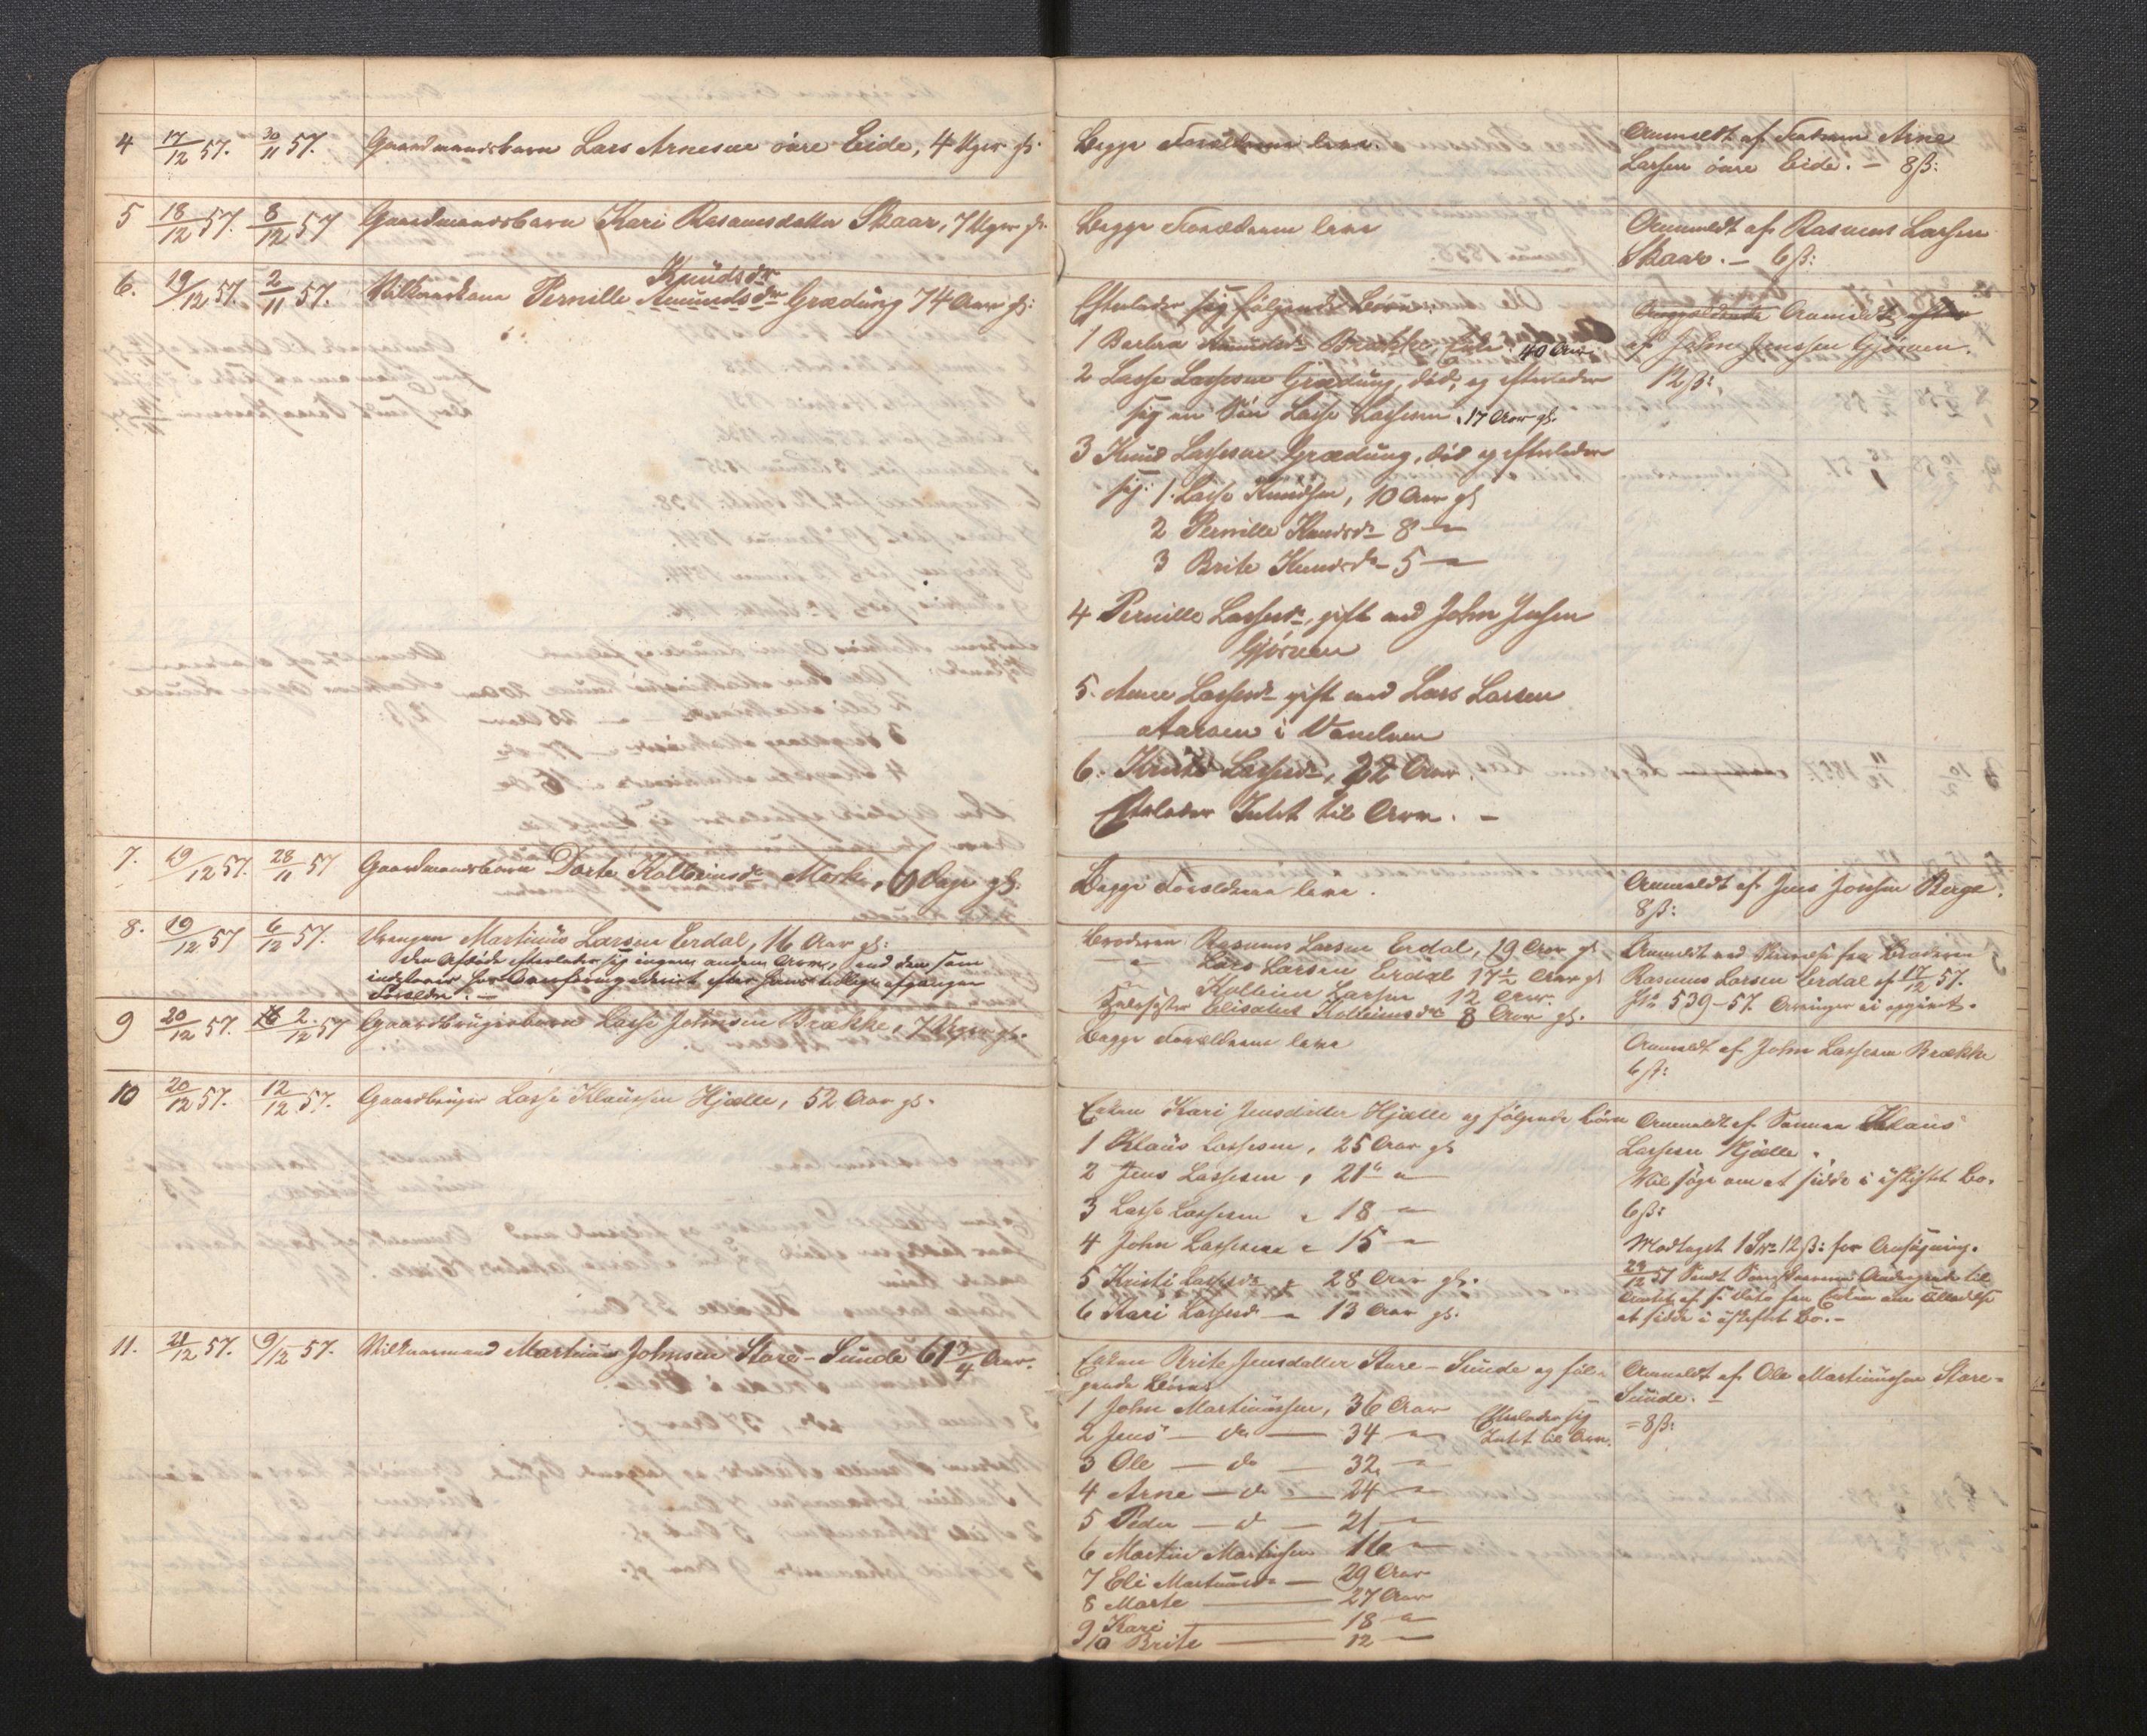 4 17/12 57. 30/11 57. Gaardmandsbarn Lars Arnesen övre Eide, 4 Uger gl.
Begge Forældrene leve.
Anmeldt af Faderen Arne
Larsen övre Eide. – 8 ß:
5 18/12 57. 8/12 57 Gaardmandsbarn Kari Rasmusdatter Skaar, 7 Uger gl.
Begge Forældrene leve
Anmeldt af Rasmus Larsen
Skaar. – 6 ß:
Knudsdr
6. 19/12 57. 2/11 57. Vilkaarskone Pernille Amundsdr Græding 74 Aar gl:
Efterlader sig følgende Børn:
1 Barbra Brække, 40 Aar
2 Lasse Lassesen Græding, död, og efterlader
sig en Sön Lasse Lassesen, 17 Aar gl.
3 Knud Lassesen Græding, död og efterlader
sig: 1. Lasse Knudsen, 10 Aar gl
2 Pernille Knudsdr 8 –
3 Brite Knudsdr 5 –
4 Pernille Lassesdr, gift med John Jensen
Gjörven
5. Anne Lassesdr gift med Lars Larsen
Aarsen i Vandven
6. Lassesdr, 22 Aar
Efterlader Intet til Arv. –
Anmeldt
af John Jenssen Gjörven.
12 ß:
7. 19/12 57. 28/11 57 Gaardmandsbarn Dorte Kolbeinsdr Mork, 6 Dage gl:
Begge Forældrene leve.
Anmeldt af Jens Jonsen Berge.
8 ß:
8. 19/12 57 6/12 57. Drengen Martinus Larsen Erdal, 16 Aar gl:
Den Afdöde efterlader sig ingen anden Arv, end den som
indestaaer hos Overformynderiet efter hans tidligere afgangne
Forældre. –
Broderen Rasmus Larsen Erdal, 19 Aar gl
– Lars Larsen Erdal 17½ Aar gl
– Kolbein Larsen 12 Aar.
Halvsöster Elisabet Kolbeinsdr 8 Aar gl.
Anmeldt ved Skrivelse fra Broderen
Rasmus Larsen Erdal af 17/12 57.
No 539–57. Arvinger ei opgivet.
9 20/12 57. 2/12 57 Gaardbrugerbarn Lasse Johnsen Brække, 7 Uger gl.
Begge Forældrene leve
Anmeldt af John Lassesen Brække
6 ß:
10 20/12 57. 12/12 57. Gaardbruger Lasse Klaussen Hjælle, 52 Aar gl.
Enken Kari Jensdatter Hjælle og følgende Börn
1 Klaus Lassesen, 25 Aar gl
2 Jens Lassesen, 21 –
3 Lasse Lassesen – 18 –
4 John Lassesen – 15 –
5 Kristi Lassesdr – 28 Aar gl.
6 Kari Lassesdr – 13 Aar gl.
Anmeldt af Sönnen Klaus
Lassesen Hjælle.
Vil söge om at sidde i uskiftet Bo.
6 ß:
Modtaget 1 Ort 12 ß: for Ansögning.
29/12 57 Sendt
Amtet fra Enken om Tilladelse
at sidde i uskiftet Bo. –
11. 21/12 57. 9/12 57. Vilkaarmand Martinus Johnsen Store-Sunde 61 3/4 Aar.
Enken Brite Jensdatter Store-Sunde og föl-
gende Börn:
1 John Martinussen, 36 Aar
2 Jens – do – 34 –
3 Ole – do – 32 –
4 Arne – do – 24 –
5 Peder – do – 21 –
6 Martin Martinsen 16 –
7 Eli Martinusdr – 29 Aar
8 Marte – 27 Aar
9 Kari – 18 –
10 Brite – 12 –
Efterlader sig
Intet til Arv.
Anmeldt af Ole Martinussen Store-
Sunde. –
= 8 ß: